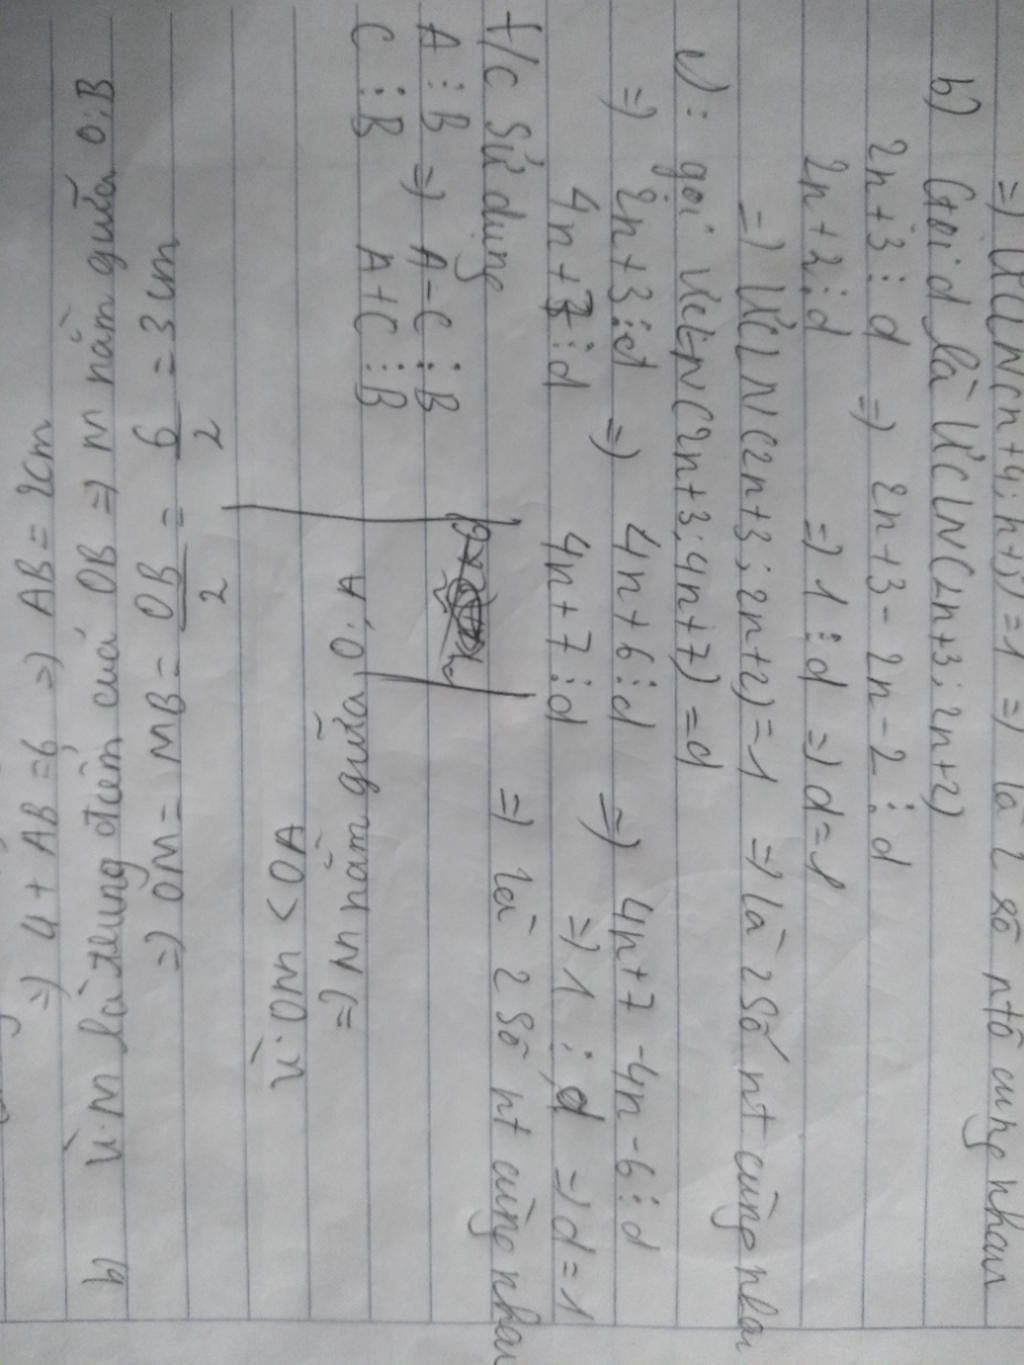 =) ƯCLN(n+4; n+3)=1 =) là 2 số ntố cùng nhau
b) Gọi d là ƯCLN(2n+3; 2n+2)
2n+3⋮d =) 2n+3-2n-2⋮d
2n+2⋮d =) 1⋮d =) d=1
=) ƯCLN(2n+3; 2n+2)=1 =) là 2 số nt cùng nhau
c): gọi ƯCLN(2n+3; 4n+7)=d
=) 2n+3⋮d =) 4n+6⋮d =) 4n+7-4n-6⋮d
4n+7⋮d 4n+7⋮d =) 1⋮d =) d=1
t/c Sử dụng =) là 2 số nt cùng nhau
A⋮B =) A-C⋮B
C⋮B A+C⋮B
=) M nằm giữa O; A
vì: OM<OA
=) OM=MB=OB/2=6/2=3cm
b) vì: M là trung điểm của OB =) M nằm giữa O;B
=) 4+AB=6 =) AB=2cm